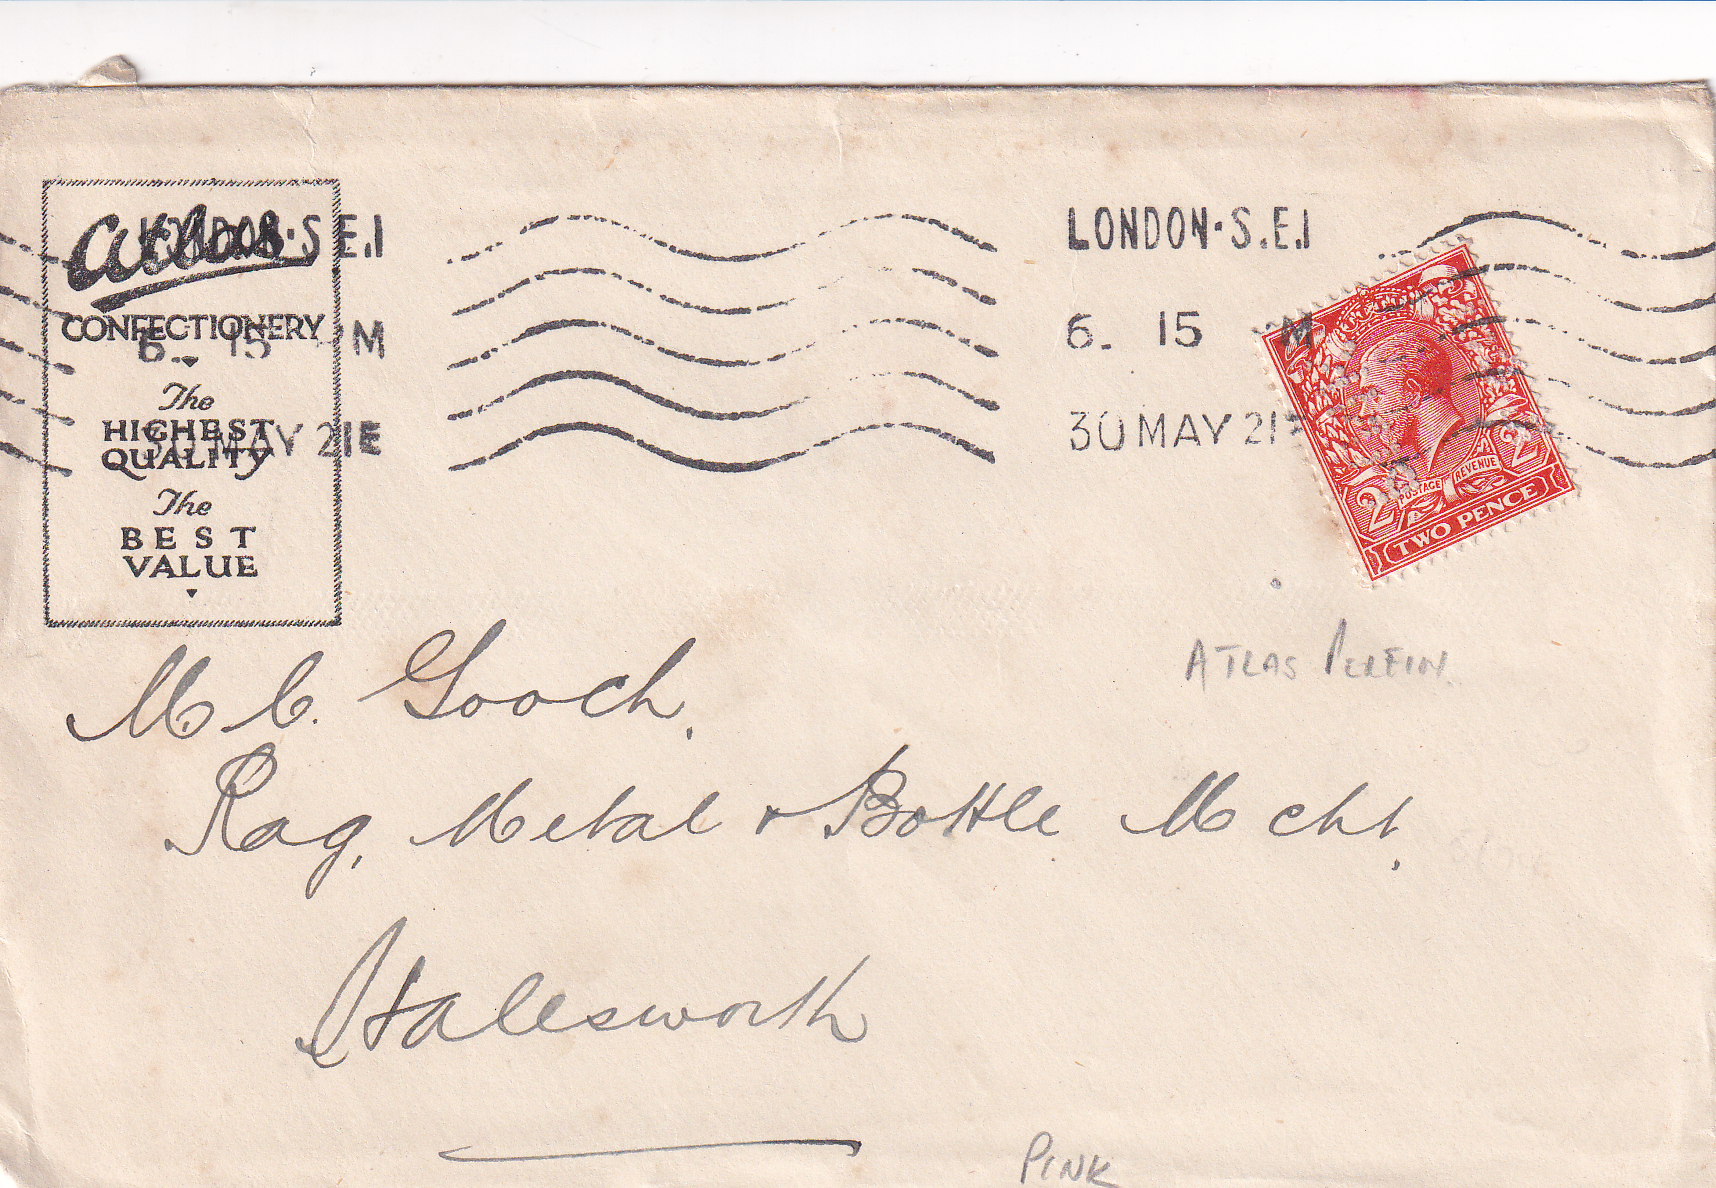 Atlas
CONFECTIONERY
The
HIGHEST
QUALITY
The
BEST
VALUE
LONDON·S.E.1
6. 15 PM
30 MAY 21 E
LONDON·S.E.1
6. 15 M
30 MAY 21
2 POSTAGE REVENUE 2
TWO PENCE
ATLAS PERFIN
M C. Gooch.
Rag, Metal & Bottle Mcht.
Halesworth
PINK